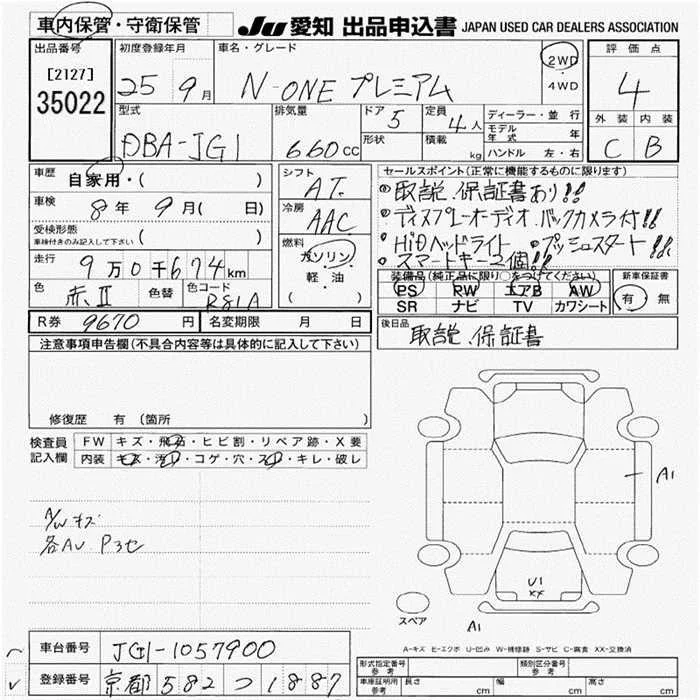 車内保管・守衛保管
JU 愛知 出品申込書 JAPAN USED CAR DEALERS ASSOCIATION
出品番号 初度登録年月 車名・グレード 評価点
[2127]
35022
25 9月 N-ONE プレミアム 2WD・4WD 4
外装 内装
C B
型式 排気量 ドア 5 定員 4人 ディーラー・並行
DBA-JG1 660cc 形状 積載 kg モデル年式 年
ハンドル 左・右
車歴 自家用・( )
車検 8年 9月( 日)
受検形態
車検付きのみ記入して下さい ( )
走行 9万0千674km
色 赤II 色替 色コード R81A
シフト AT
冷房 AAC
燃料 ガソリン・軽・油
( )
セールスポイント(正常に機能するものに限ります)
取説.保証書あり!!
ディスプレーオーディオ バックカメラ付!!
HiDヘッドライト プッシュスタート!!
スマートキー2個!!
装備品(純正品に限り○をつけてください) 新車保証書
PS PW エアB AW 有・無
SR ナビ TV カワシート
R券 9670円 名変期限 月 日
後日品 取説.保証書
注意事項申告欄(不具合内容等は具体的に記入して下さい)
修復歴 有 (箇所 )
検査員記入欄 FW キズ・飛石・ヒビ割・リペア跡・X要
内装 キズ・汚れ・コゲ・穴・スレ・キレ・破レ
A/Wキズ
A1
U1
XX
A1
スペア
A-キズ E-エクボ U-凹み W-補修跡 S-サビ C-腐食 XX-交換済
車台番号 JG1-1057900
登録番号 京都 582 つ 1887
形式指定番号 参考 類別区分番号 参考
車庫証明用 参考 長さ cm 幅 cm 高さ cm